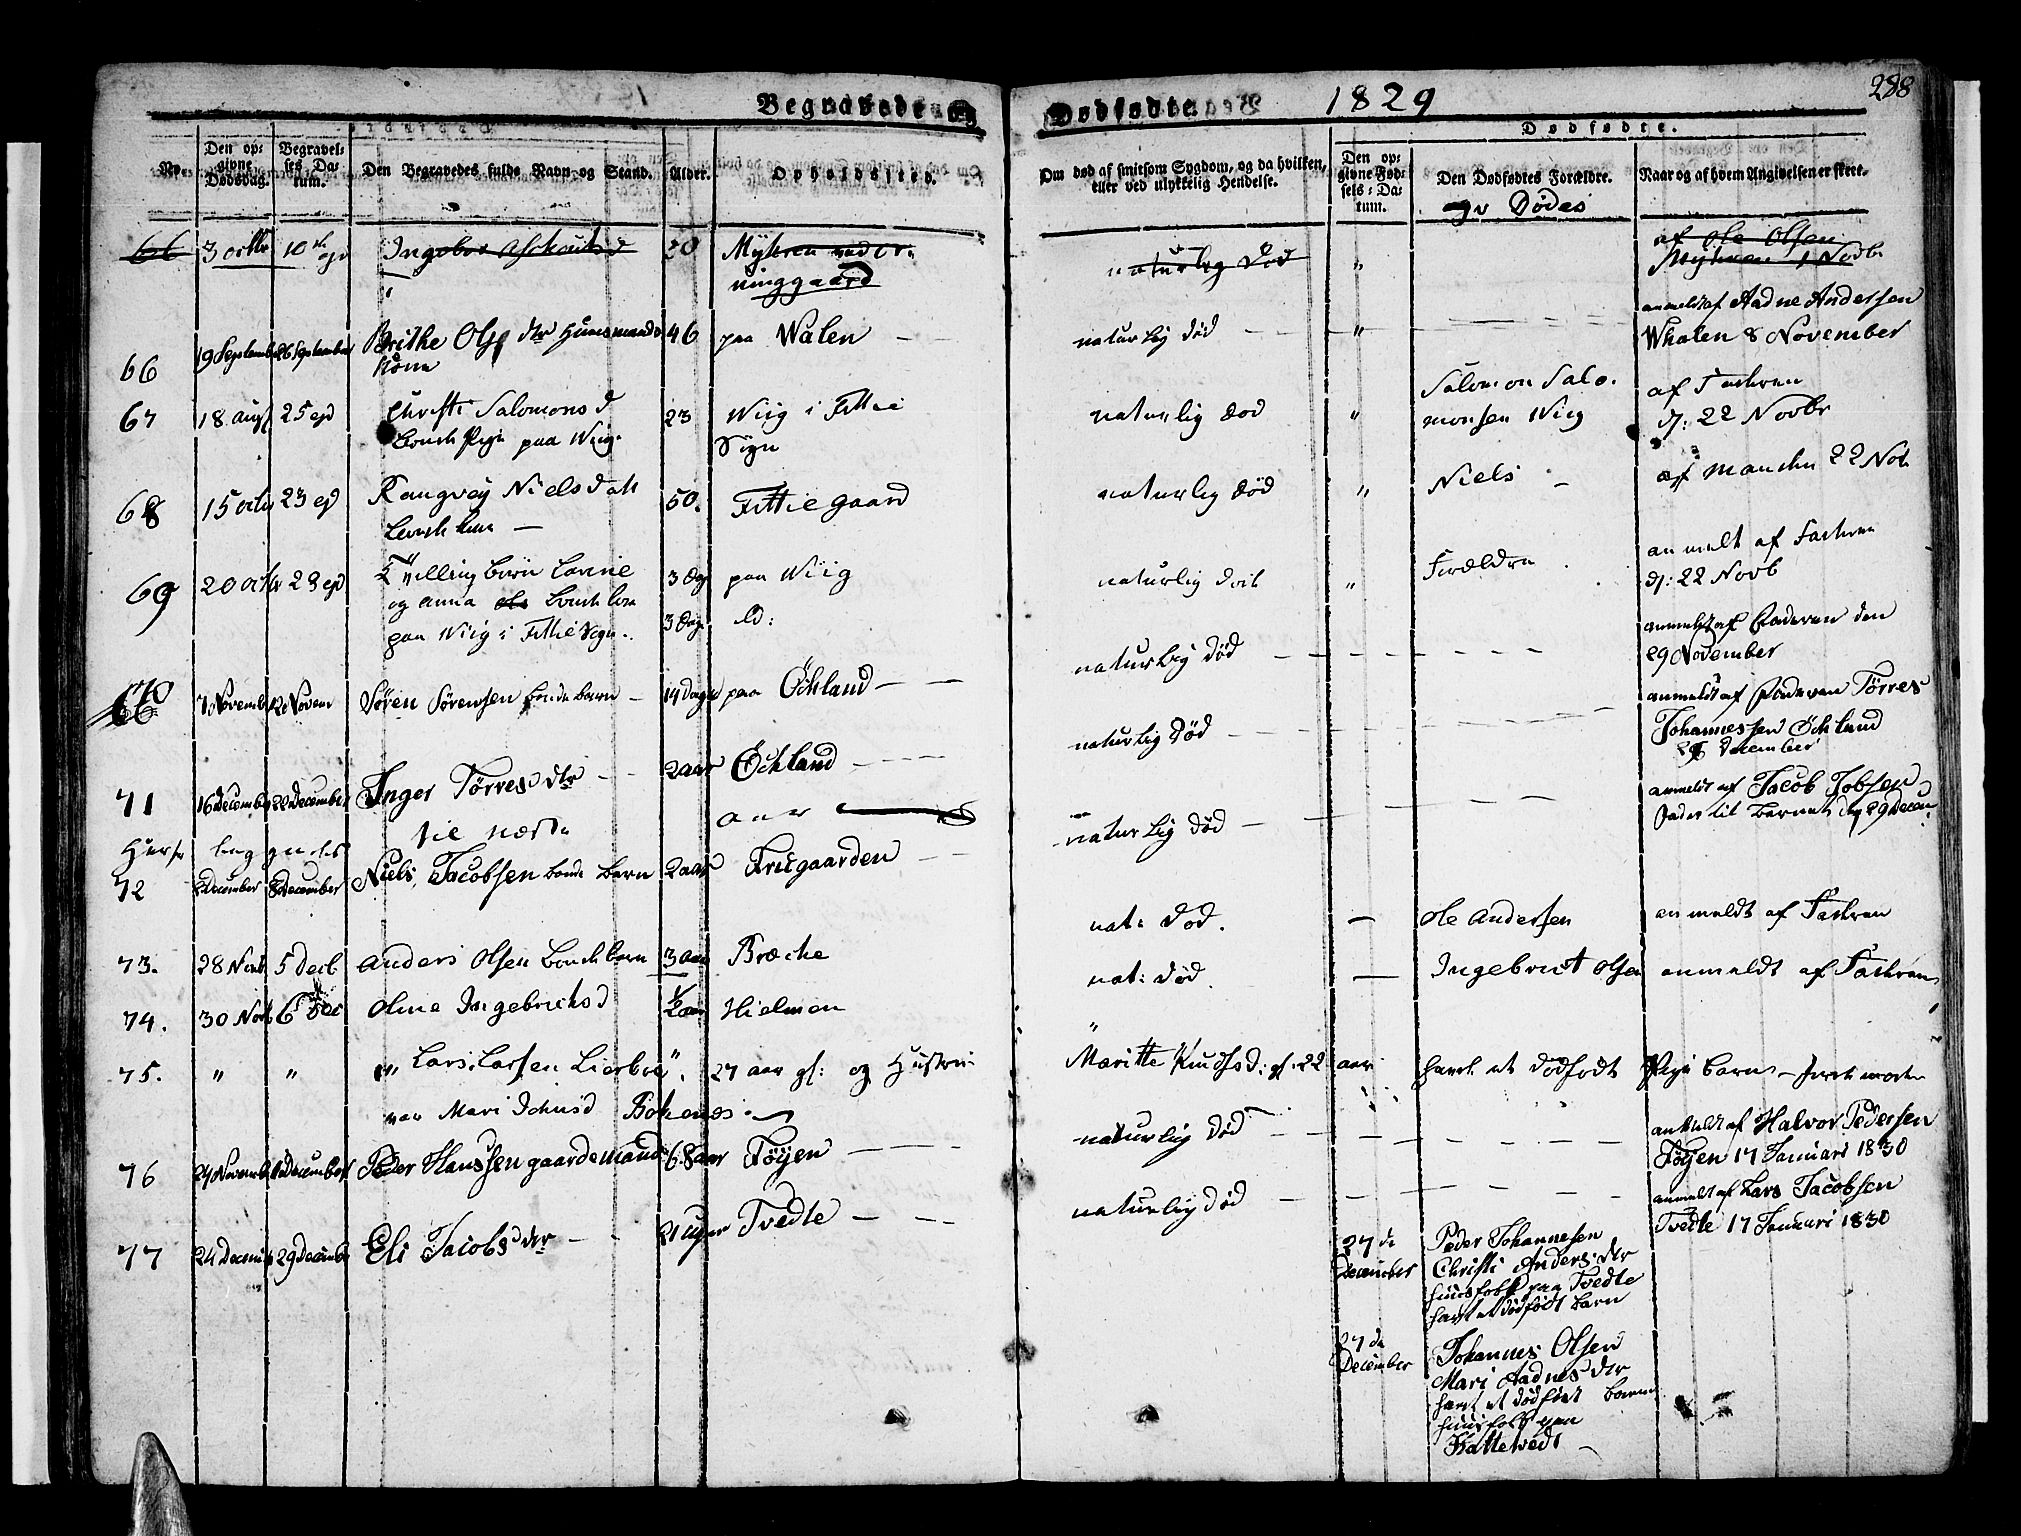 288
Begravede og Dødfødte 1829
Dødfødte.
No.
Den opgivne Dødsdag.
Begravelses Datum.
Den Begravedes fulde Navn og Stand.
Alder.
Opholdssted.
Om død af smitsom Sygdom, og da hvilken, eller ved ulykkelig Hendelse.
Den opgivne Fødsels-Datum.
Den Dødfødtes Forældre.
Naar og af hvem Angivelsen er skeet.
Dødes
66 3 octbr 10 ejd 20 Mykren
naturlig Død "
af Ole Olsen
Mykren 1 Novbr
66 19 September 26 September Brithe Olsdtr Huusmands 46 paa Walen
Kone
naturlig død "
anmeldt af Aadne Andersen
Whalen 8 November
67 18 aug 25 ejd Christi Salomonsd 23 Wiig i Fittie
paa Wiig Sogn
naturlig død " Salomon Salo-
monsen Wiig
af Faderen
d: 22 Novbr
68 15 octbr 23 ejd Rangvey Nielsdatt 50. Fittie gaard
naturlig død " Niels
af Manden 22 Nov
69 20 octbr 28 ejd Tvilling børn 3 Dag paa Wiig
og Anna 3 Dag D:
paa Wiig i Fittie Sogn
naturlig død " Forældre
anmeldt af Faderen
d: 22 Novb
70 7 Novemb 12 Novem Sören Sörensen bonde barn 14 Dage paa Öckland
naturlig død
anmeldt af Faderen den
29 November
71 16 December 22 December Inger Törresdtr 2 aar Öckland
naturlig Død
anmeldt af Faderen Törres
Johannessen Öckland
December
72 December 8 December Niels Jacobsen bonde barn 2 aar Friegaarden
naturlig død
anmeldt af Jacob Jobsen
Fader til barnet den 29 Decem
73. 28 Novb 5 Decb Anders Olsen bonde barn 3 aar Bræcke
nat: Død. — Ole Andersen anmeldt af Faderen
74. 30 Novb 6 Dec Olina Ingebrictsd ½ aar Hielmen
nat: Død. — Ingebrict Olsen anmeldt af Faderen
75. " " Lars Larsen Lierboe 27 aar gl: og Hustru
Maritte Knudsd: gl: 22 aar havde et dødfødt Pige barn
var Mari Johnsd Bokenes
76 24 Novemb December Peder Hanssen gaardemand 68 aar Töyen
naturlig død
anmeldt af Halvor Pedersen
Töyen 17 Januari 1830
77 24 December 29 December Eli Jacobsdtr 21 uger Tvedte
naturlig død
anmeldt af Lars Jacobsen
Tvedte 17 Januari 1830
27 de
December
Peder Johannesen
Christi Andersdtr
huusfolk paa Tvedte
havt et dødfödt barn
27 de
December
Johannes Olsen
Mari Aadnesdtr
havt et dödfödt barn
huusfolk paa
Hattetvedt